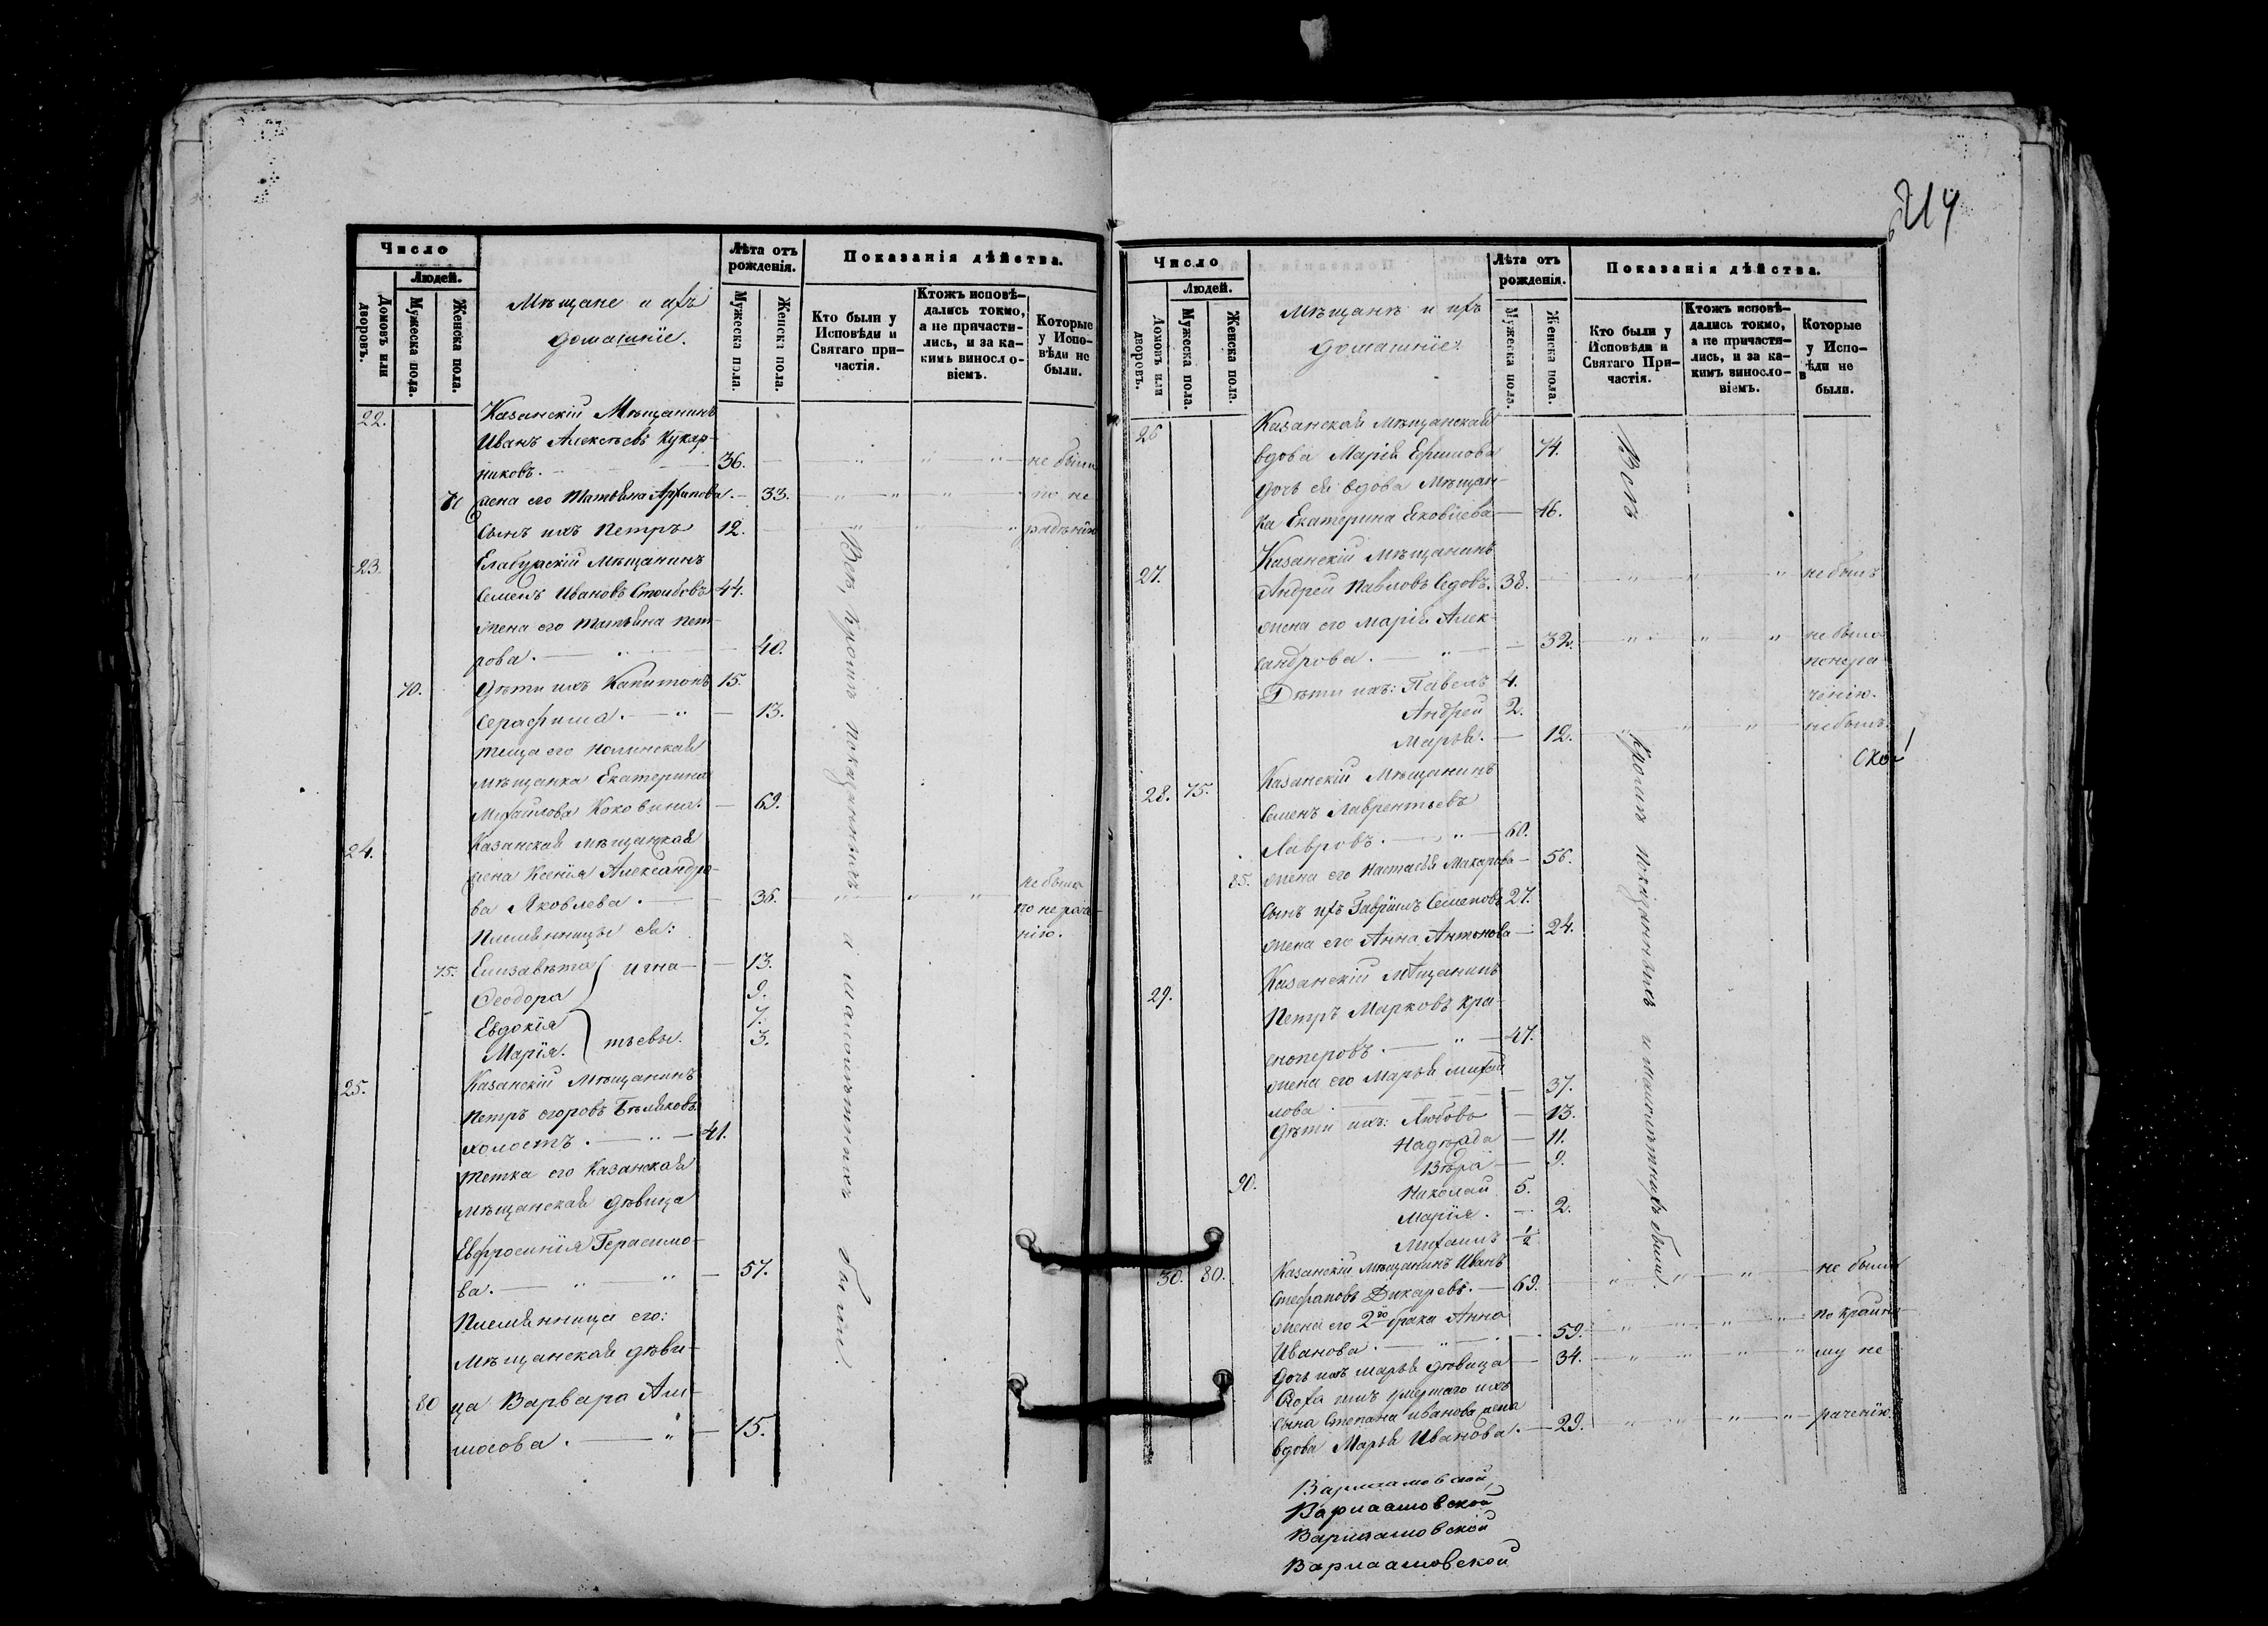 Число
Людей.
Домовъ или дворовъ.
Мужеска пола.
Женска пола.
Мѣщане и ихъ
домашніе.
Лѣта отъ рожденія.
Мужеска пола.
Женска пола.
Показанія дѣйства.
Кто были у Исповѣди и Святаго причастія.
Ктожъ исповѣдались токмо, а не причастились, и за какимъ винословіемъ.
Которые у Исповѣди не были.
22. Казанскій Мѣщанинъ
Иванъ Алексѣевъ Кукар-
никовъ. — 36. — " — " — " — не были
71 жена его Татьяна Архипова. — 33. — " — " — " — по не
Сынъ ихъ Петръ 12. — " — " — " радѣнію
23. Елабужскій Мѣщанинъ
Семенъ Ивановъ Столбовъ 44.
жена его Татьяна Пет-
рова. — " — 40.
70. Дѣти ихъ Капитонъ 15.
Серафима. — " — 13.
теща его Нолинская
мѣщанка Екатерина
Михайлова Коковина. — 69.
24. Казанская мѣщанская
жена Ксенія Александро-
ва Яковлева. — 36. " — " — " не была
по нераче-
нію.
Племянницы ея:
75. Елизавета } Игна- — 13.
Ѳеодора 9.
Евдокія 7.
Марія. } тьевы. 3.
25. Казанскій Мѣщанинъ
Петръ Егоровъ Бѣляковъ
холостъ. — " — 41.
тетка его Казанская
мѣщанская дѣвица
Евфросинія Герасимо-
ва. — " — " — 57.
Племянница его:
Мѣщанская дѣви-
80 ца Варвара
— " — 15.
Всѣ, кромѣ показанныхъ и малолѣтнихъ были.
214
Число
Людей.
Домовъ или дворовъ.
Мужеска пола.
Женска пола.
Мѣщанъ и ихъ
домашніе.
Лѣта отъ рожденія.
Мужеска пола.
Женска пола.
Показанія дѣйства.
Кто были у Исповѣди и Святаго Причастія.
Ктожъ исповѣдались токмо, а не причастились, и за какимъ винословіемъ.
Которые у Исповѣди не были.
26 Казанская Мѣщанская
вдова Марія Ефимова 74.
дочь ея вдова Мѣщан-
ка Екатерина Яковлева — 46.
27. Казанскій Мѣщанинъ
Андрей Павловъ Седовъ. 38. — " — " — " не былъ
жена его Марія Алек-
сандрова. — " — 32. — " — " — " не была
понера
ченію.
Дѣти ихъ: Павелъ 4.
Андрей 2.
Марья. — 12. — " — " не былъ.
28. 75. Казанскій Мѣщанинъ
Семенъ Лаврентьевъ
Лавровъ. — " — 60.
85. жена его Настасья Макарова — 56.
Сынъ ихъ Гавріилъ Семеновъ 27.
жена его Анна Антонова — 24.
29. Казанскій Мѣщанинъ
Петръ Марковъ Кра-
сноперовъ. — " — 47.
жена его Марья Михай
лова. — 37.
Дѣти ихъ: Любовь — 13.
Надежда — 11.
Вѣра — 9.
90. Николай 5.
Марія. — 2.
Михаилъ ½
30. 80. Казанскій мѣщанинъ Иванъ
Стефановъ Дикаревъ. — 69. — " — " — " — не были
жена его 2го брака Анна
Иванова. — " — 59. — " — " — " — по крайне
дочь ихъ Марья дѣвица — 34. — " — " — " — му не
умершаго ихъ
сына Степана Иванова жена
вдова Марья Иванова. — 29. " — " — " — " — раченію.
Всѣ кромѣ показанныхъ и малолѣтнихъ были.
Варлаамовской
Варлаамовской
Варлаамовской
Варлаамовской